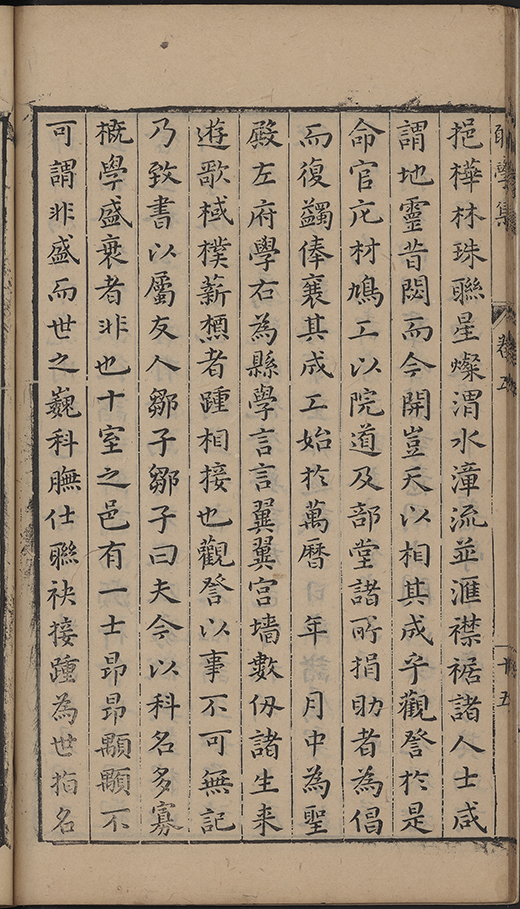 挹樺林珠聯星燦渭水漳流並滙襟裾諸人士咸
謂地靈昔閟而今開豈天以相其成乎觀詧於是
命官庀材鳩工以院道及部堂諸所捐助者為倡
而復蠲俸襄其成工始於萬曆　年　月中為聖
殿左府學右為縣學言言翼翼宮墻數仞諸生来
遊歌棫樸薪槱者踵相接也觀詧以事不可無記
乃致書以屬友人鄒子鄒子曰夫今以科名多寡
概學盛衰者非也十室之邑有一士昂昂顒顒不
可謂非盛而世之巍科膴仕聯袂接踵為世指名
學集
卷五
廿五